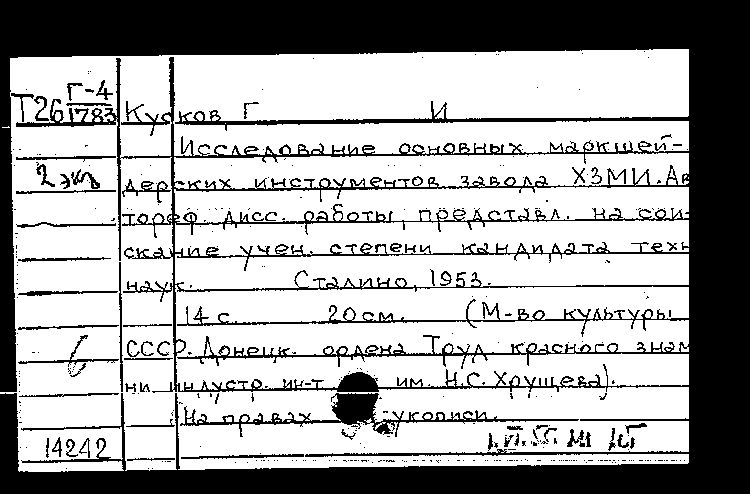 Т26 Г-4
1783 Кусков, Г И
Исследование основных маркшей-
2 экз дерских инструментов завода ХЗМИ. Ав
тореф. дисс. работы, представл. на сои-
скание учен. степени кандидата техн
наук. Сталино, 1953.
14 с. 20 см. (М-во культуры
СССР. Донецк. ордена Труд. красного знам
ни индустр. ин-т им. Н.С. Хрущева).
На правах укописи.
14242